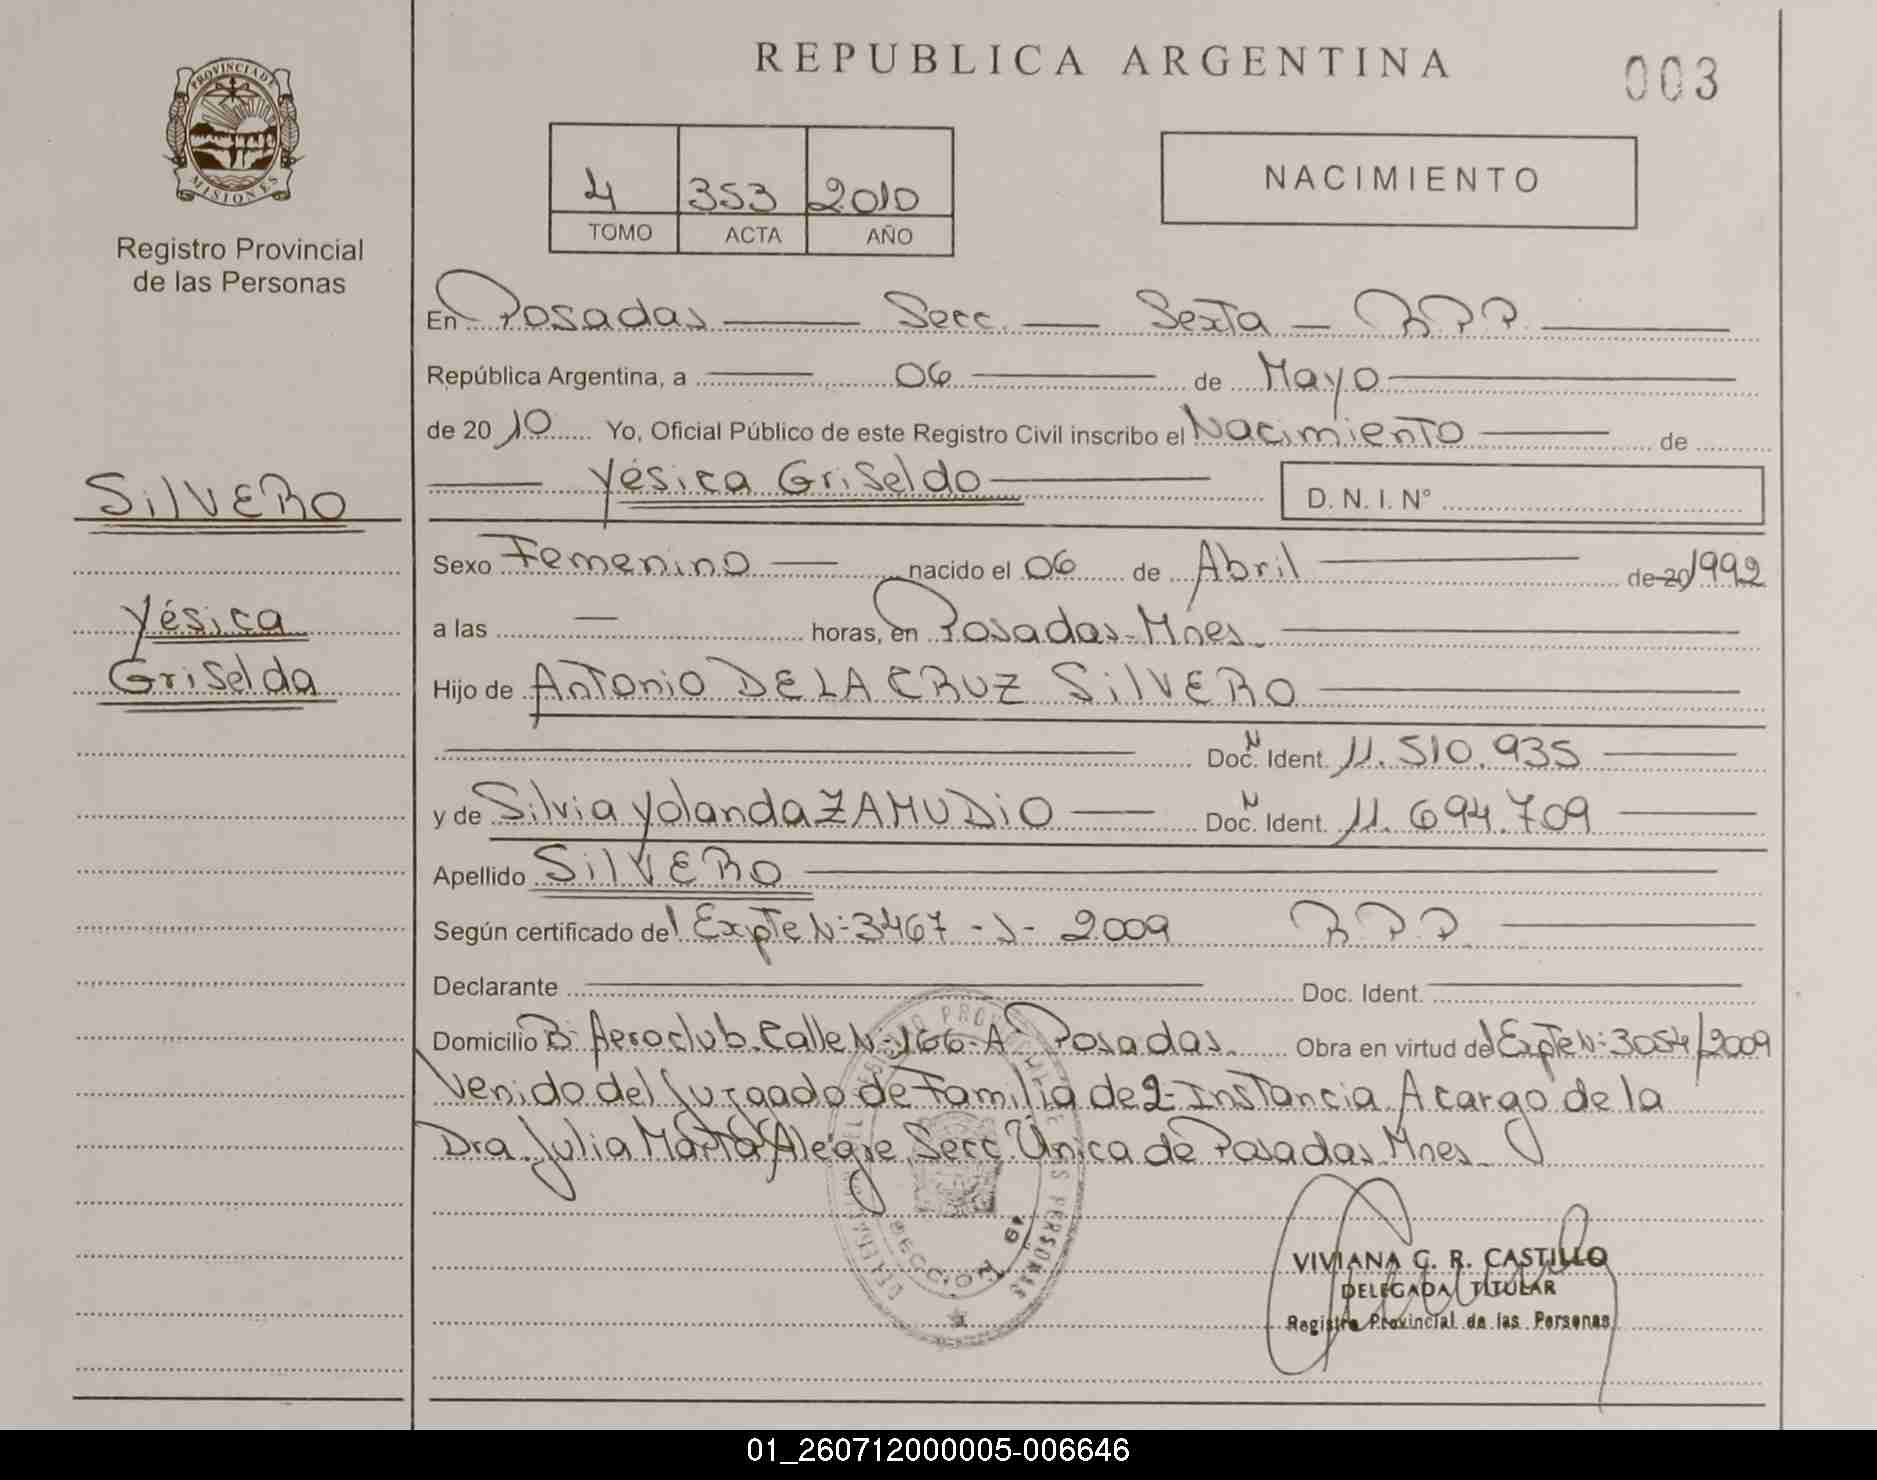 PROVINCIA DE
MISIONES
Registro Provincial
de las Personas
SILVERO
Yésica
Griselda
REPUBLICA ARGENTINA
003
4 353 2010
TOMO ACTA AÑO
NACIMIENTO
En Posadas Secc. Sexta R.P.P.
República Argentina, a 06 de Mayo
de 2010 Yo, Oficial Público de este Registro Civil inscribo el Nacimiento de
Yésica Griselda
D. N. I. N°
Sexo Femenino nacido el 06 de Abril de 20 1992
a las horas, en Posadas-Mnes.
Hijo de Antonio DE LA CRUZ SILVERO
Doc. N Ident. 11.510.935
y de Silvia Yolanda ZAMUDIO Doc. N Ident. 11.694.709
Apellido SILVERO
Según certificado del Expte N: 3467 -J- 2009 R.P.P.
Declarante Doc. Ident.
Domicilio B: Aeroclub. Calle N: 166-A Posadas. Obra en virtud del Expte N: 3054/2009
Venido del Juzgado de Familia de 2- Instancia A cargo de la
Dra. Julia Marta Alegre, Secc. Única de Posadas Mnes.
VIVIANA G. R. CASTILLO
DELEGADA TITULAR
Registro Provincial de las Personas
01_260712000005-006646